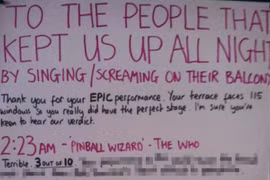 TO THE PEOPLE THAT
KEPT US UP ALL NIGHT
BY SINGING/SCREAMING ON THEIR BALCON
Thank you for your EPIC performance. Your terrace faces 115
windows so you really did have the perfect stage. I'm sure you're
keen to hear our verdict.
2:23 AM - PINBALL WIZARD - THE WHO
Terrible. 3 OUT OF 10